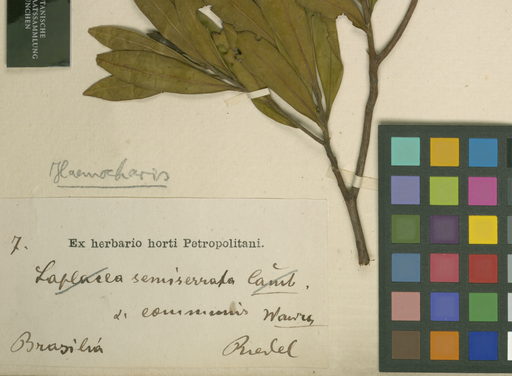 BOTANISCHE
STAATSSAMMLUNG
MÜNCHEN
Haemocharis
7.
Ex herbario horti Petropolitani.
Laplacea semiserrata Camb.
α. communis Wawra
Brasilia
Riedel